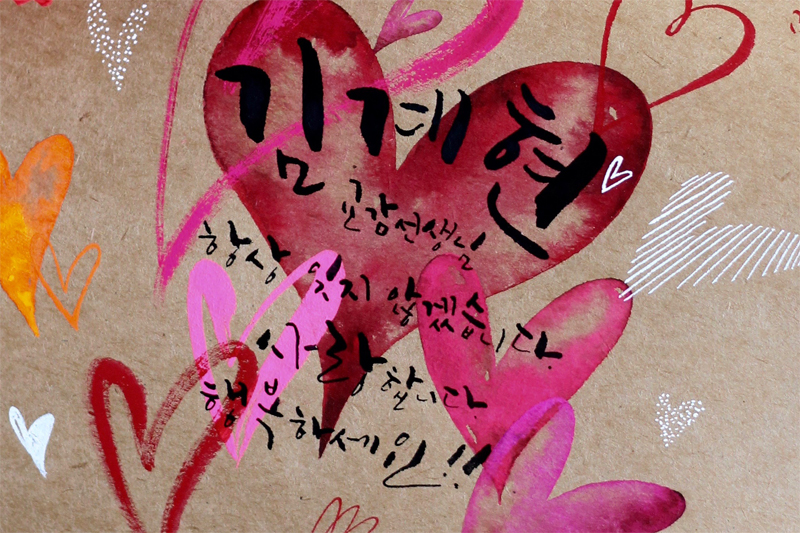 김계현
교감선생님
항상 잊지 않겠습니다.
사랑합니다.
행복하세인!!